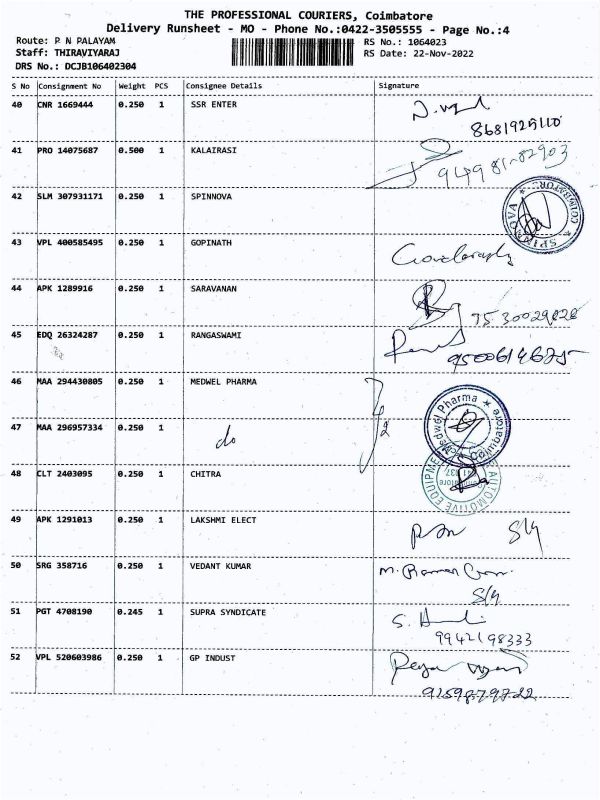 THE PROFESSIONAL COURIERS, Coimbatore
Delivery Runsheet - MO - Phone No.:0422-3505555 - Page No.:4
Route: P N PALAYAM RS No.: 1064023
Staff: THIRAVIYARAJ RS Date: 22-Nov-2022
DRS No.: DCJB106402304
S No Consignment No Weight PCS Consignee Details Signature
40 CNR 1669444 0.250 1 SSR ENTER
8681925110
41 PRO 14075687 0.500 1 KALAIRASI
94981-82903
42 SLM 307931171 0.250 1 SPINNOVA
SPINNOVA COIMBATORE
43 VPL 400585495 0.250 1 GOPINATH
44 APK 1289916 0.250 1 SARAVANAN
45 EDQ 26324287 0.250 1 RANGASWAMI
46 MAA 294430805 0.250 1 MEDWEL PHARMA
Medwel Pharma Coimbatore
47 MAA 296957334 0.250 1 do
48 CLT 2403095 0.250 1 CHITRA
AUTOMOTIVE EQUIPME
49 APK 1291013 0.250 1 LAKSHMI ELECT
50 SRG 358716 0.250 1 VEDANT KUMAR
51 PGT 4708190 0.245 1 SUPRA SYNDICATE
9942198333
52 VPL 520603986 0.250 1 GP INDUST